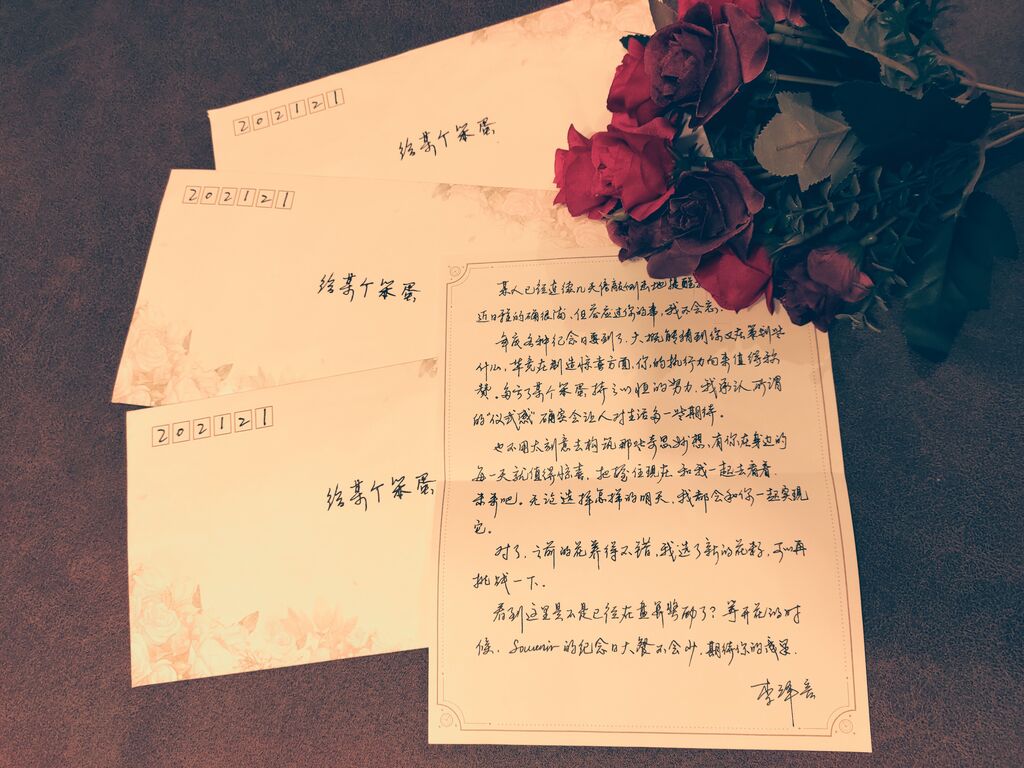 202121
给某个笨蛋
202121
给某个笨蛋
202121
给某个笨蛋
某人已经连续几天信敲侧击地提醒
近日程的确很满、但答应过你的事,我不会忘
年底各种纪念日要到了,大概能猜到你又在策划些
什么,毕竟在制造惊喜方面,你的执行力向来值得称
赞。每亏了某个笨蛋持之以恒的努力,我承认所谓
的“仪式感”确实会让人对生活每一些期待。
也不用太刻意去构筑那些奇思妙想,有你在身边的
每一天就值得惊喜。把握住现在和我一起去看看
未来吧。无论选择怎样的明天,我都会和你一起实现
它。
对了,之前的花养得不错,我选了新的花种,可以再
挑战一下。
看到这里是不是已经在盘算奖励了?等开花的时
候,Souvenir的纪念日大餐不会少,期待你的成果。
李泽言